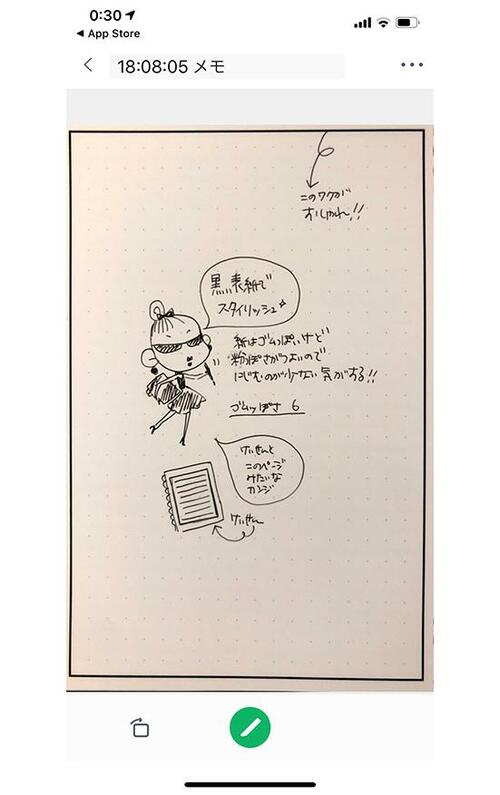 0:30
◀ App Store
18:08:05 メモ
このワクが
オシャレ!!
黒い表紙で
スタイリッシュ
紙はゴムっぽいけど
粉っぽさがつよいので
にじむのが少ない気がする!!
ゴムッぽさ 6
けいせんと
このページ
みたいな
カンジ
けいせん